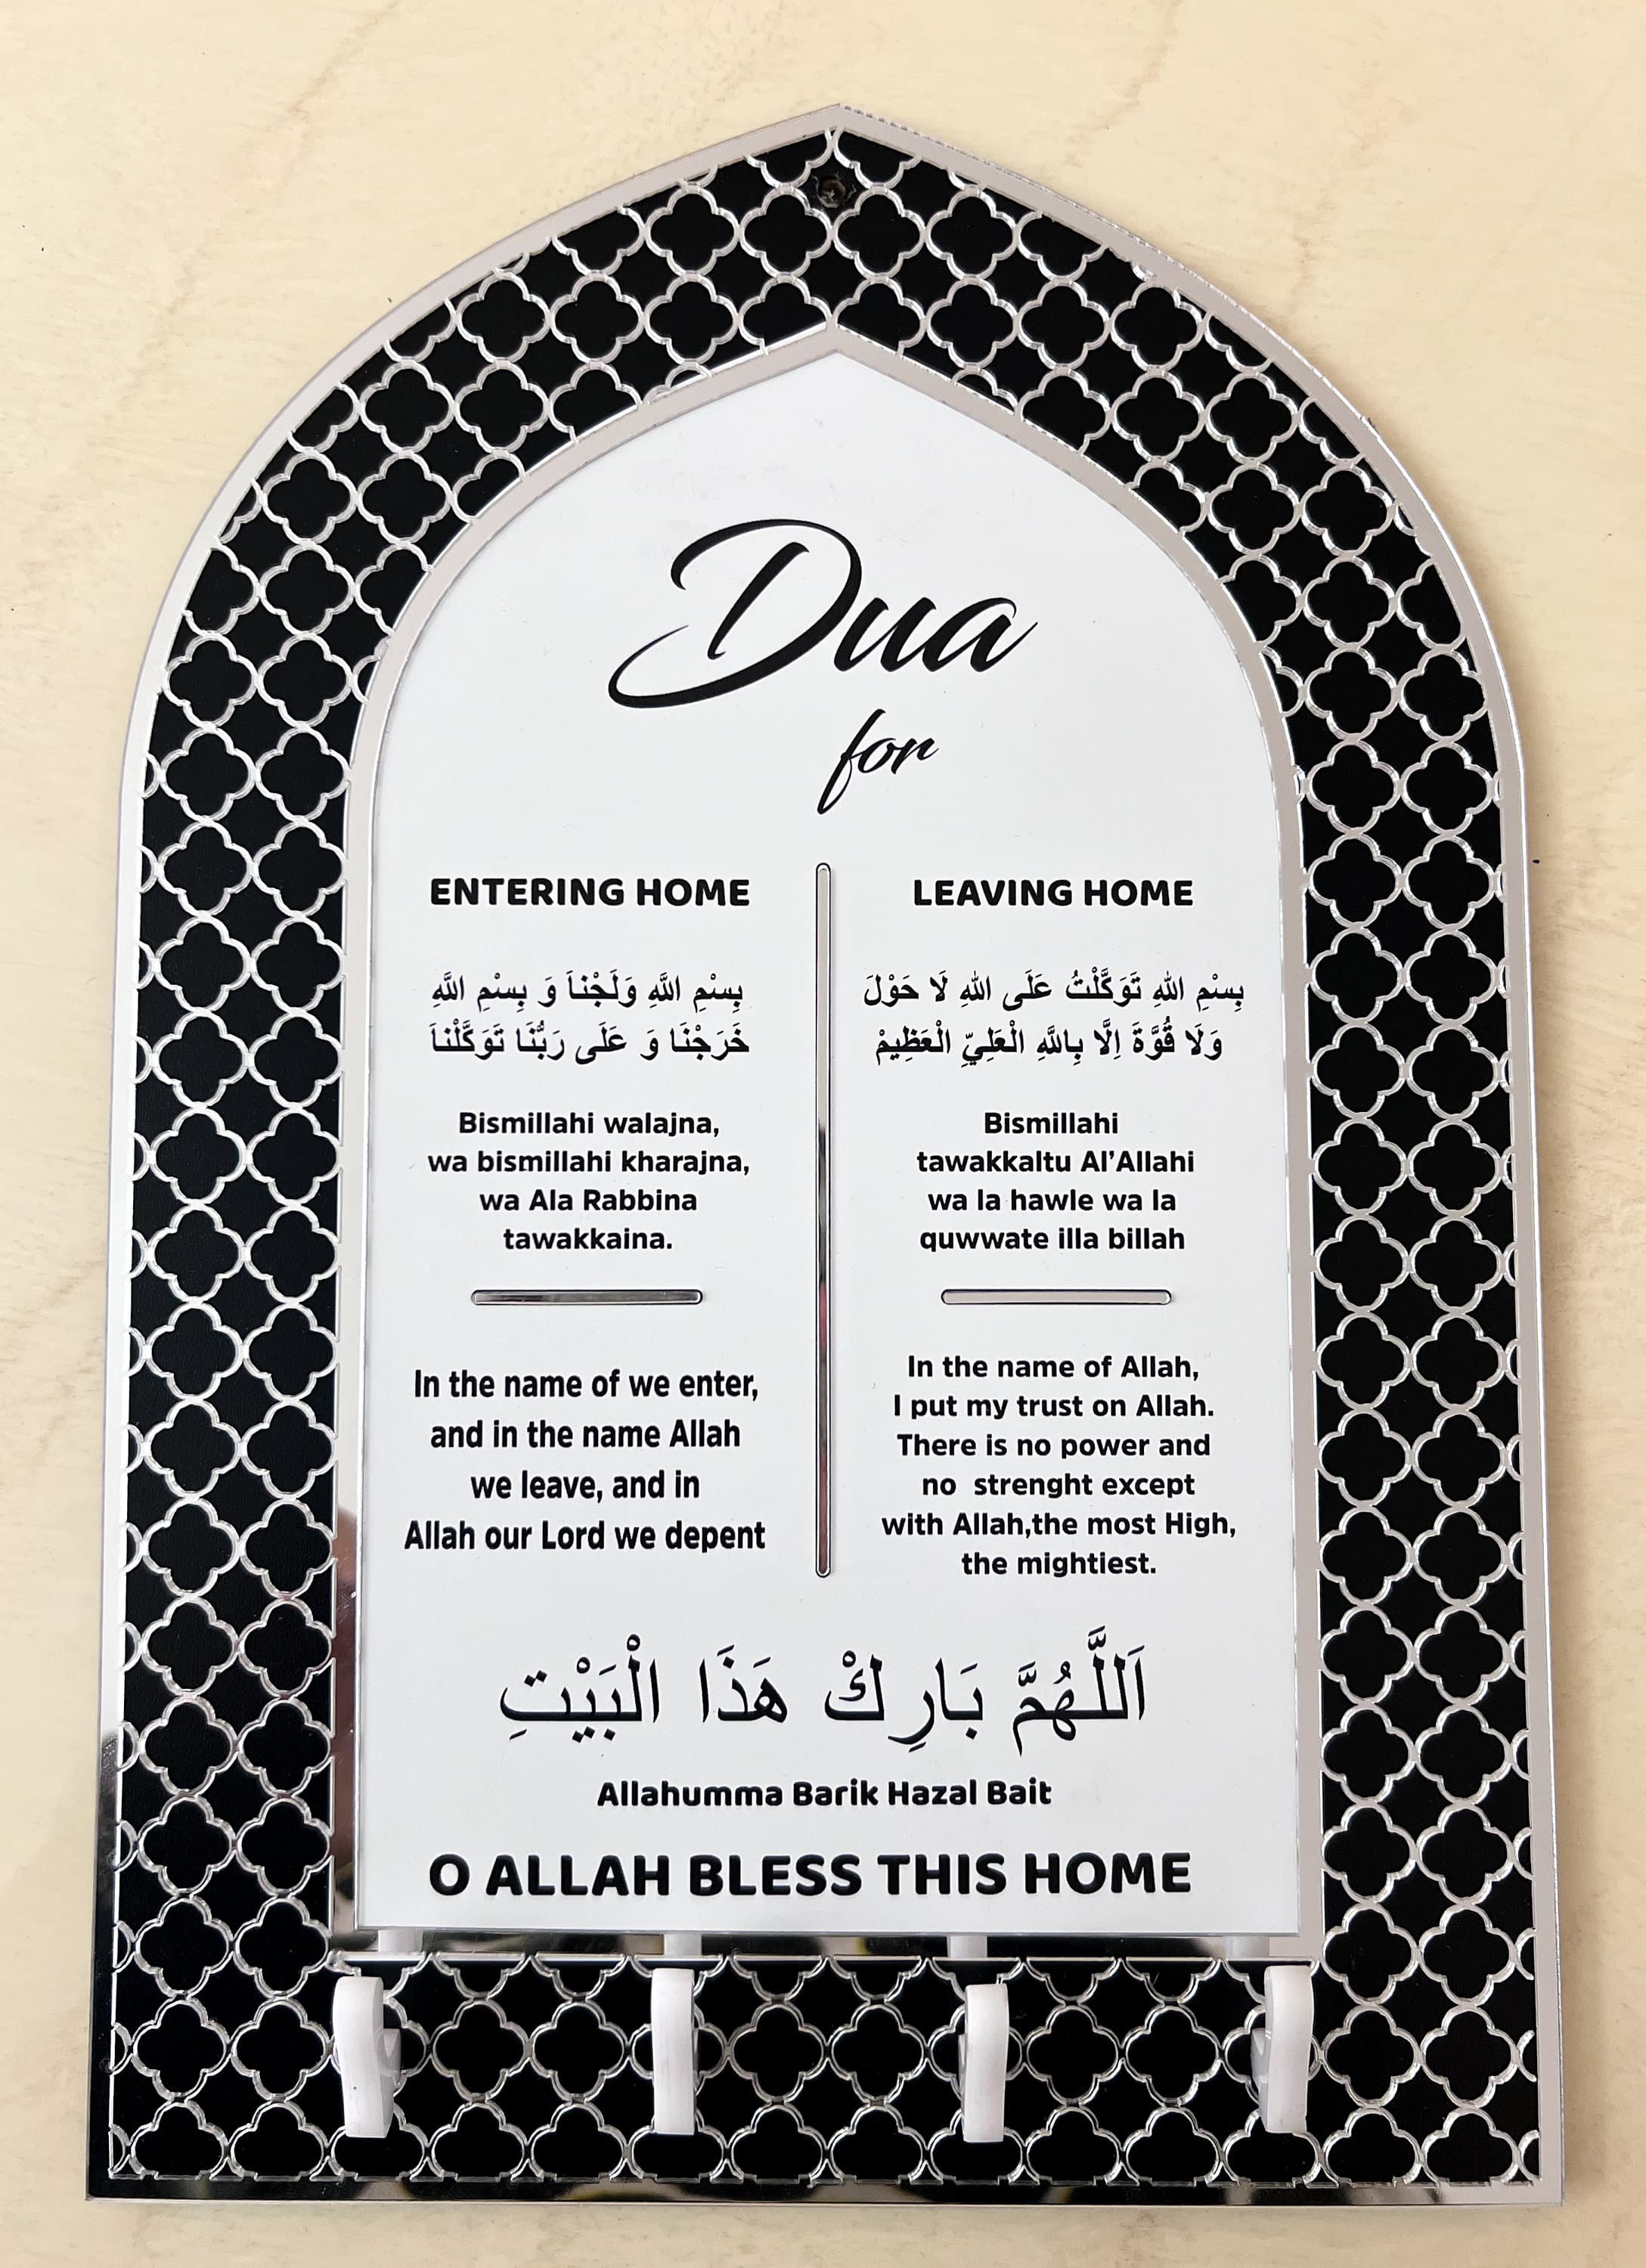 Dua
for
ENTERING HOME
بِسْمِ اللَّهِ وَلَجْنَاَ وَ بِسْمِ اللَّهِ
خَرَجْنَا وَ عَلَى رَبُّنَا تَوَكَّلْنَاَ
Bismillahi walajna,
wa bismillahi kharajna,
wa Ala Rabbina
tawakkaina.
In the name of we enter,
and in the name Allah
we leave, and in
Allah our Lord we depent
LEAVING HOME
بِسْمِ اللهِ تَوَكَّلْتُ عَلَى اللهِ لَا حَوْلَ
وَلَا قُوَّةَ اِلَّا بِاللَّهِ الْعَلِيِّ الْعَظِيمْ
Bismillahi
tawakkaltu Al’Allahi
wa la hawle wa la
quwwate illa billah
In the name of Allah,
I put my trust on Allah.
There is no power and
no strenght except
with Allah,the most High,
the mightiest.
اَللَّهُمَّ بَارِكْ هَذَا الْبَيْتِ
Allahumma Barik Hazal Bait
O ALLAH BLESS THIS HOME